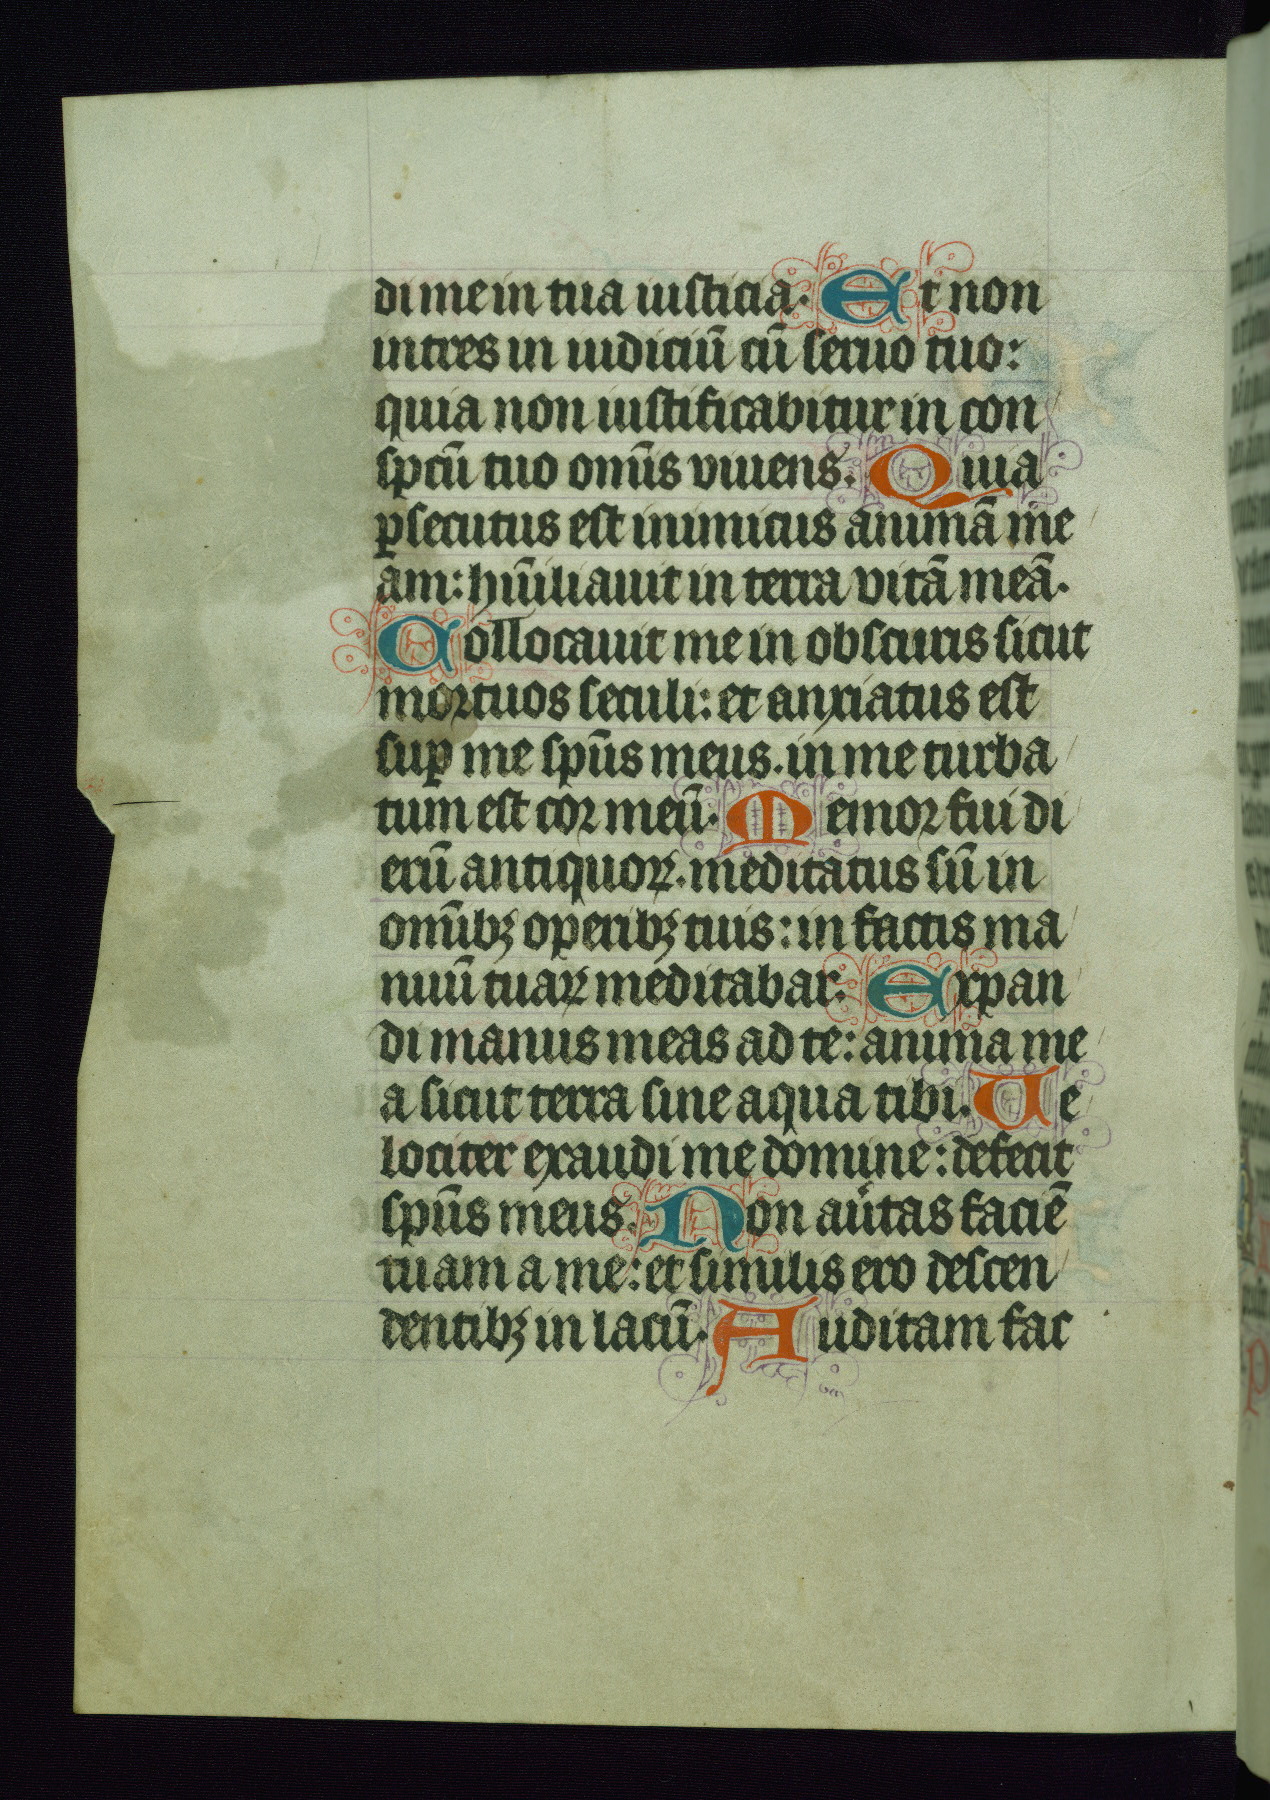 di me in tua iusticia. Et non
intres in iudiciū cū seruo tuo:
quia non iustificabitur in con
spcū tuo om̄is viuens. Quia
ꝑsecutus est inimicus animā me
am: hūiliauit in terra vitā meā.
Collocauit me in obscuris sicut
mortuos seculi: et anxiatus est
suꝑ me spūs meus. in me turba
tum est cor meū. Memor fui di
erū antiquoꝝ. meditatus sū in
om̄ibꝫ operibꝫ tuis: in factis ma
nuū tuaꝝ meditabar. Expan
di manus meas ad te: anima me
a sicut terra sine aqua tibi. Ue
lociter exaudi me domine: defecit
spūs meus. Non au̾tas faciē
tuam a me: et similis ero descen
dentibꝫ in lacū. Auditam fac